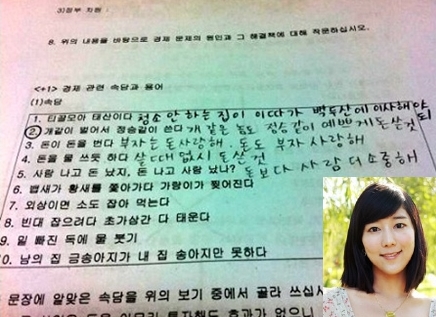 3)정부 차원 :
8. 위의 내용을 바탕으로 경제 문제의 원인과 그 해결책에 대해 작문하십시오.
<+1> 경제 관련 속담과 용어
(1)속담
1. 티끌모아 태산이다 청소 안 하는 집이 이따가 백두산에 이사해야 되
2. 개같이 벌어서 정승같이 쓴다 개 같은 놈도 정승같이 예쁘게 돈 쓴것
3. 돈이 돈을 번다 부자는 돈사랑해. 돈도 부자 사랑해
4. 돈을 물 쓰듯 하다 살 때 없시 돈쓴것
5. 사람 나고 돈 났지, 돈 나고 사람 났나? 돈보다 사람 더 소중해
6. 뱁새가 황새를 쫓아가다 가랑이 찢어진다
7. 외상이면 소도 잡아 먹는다
8. 빈대 잡으려다 초가삼간 다 태운다
9. 밑 빠진 독에 물 붓기
0. 남의 집 금송아지가 내 집 송아지만 못하다
문장에 알맞은 속담을 위의 보기 중에서 골라 쓰십시